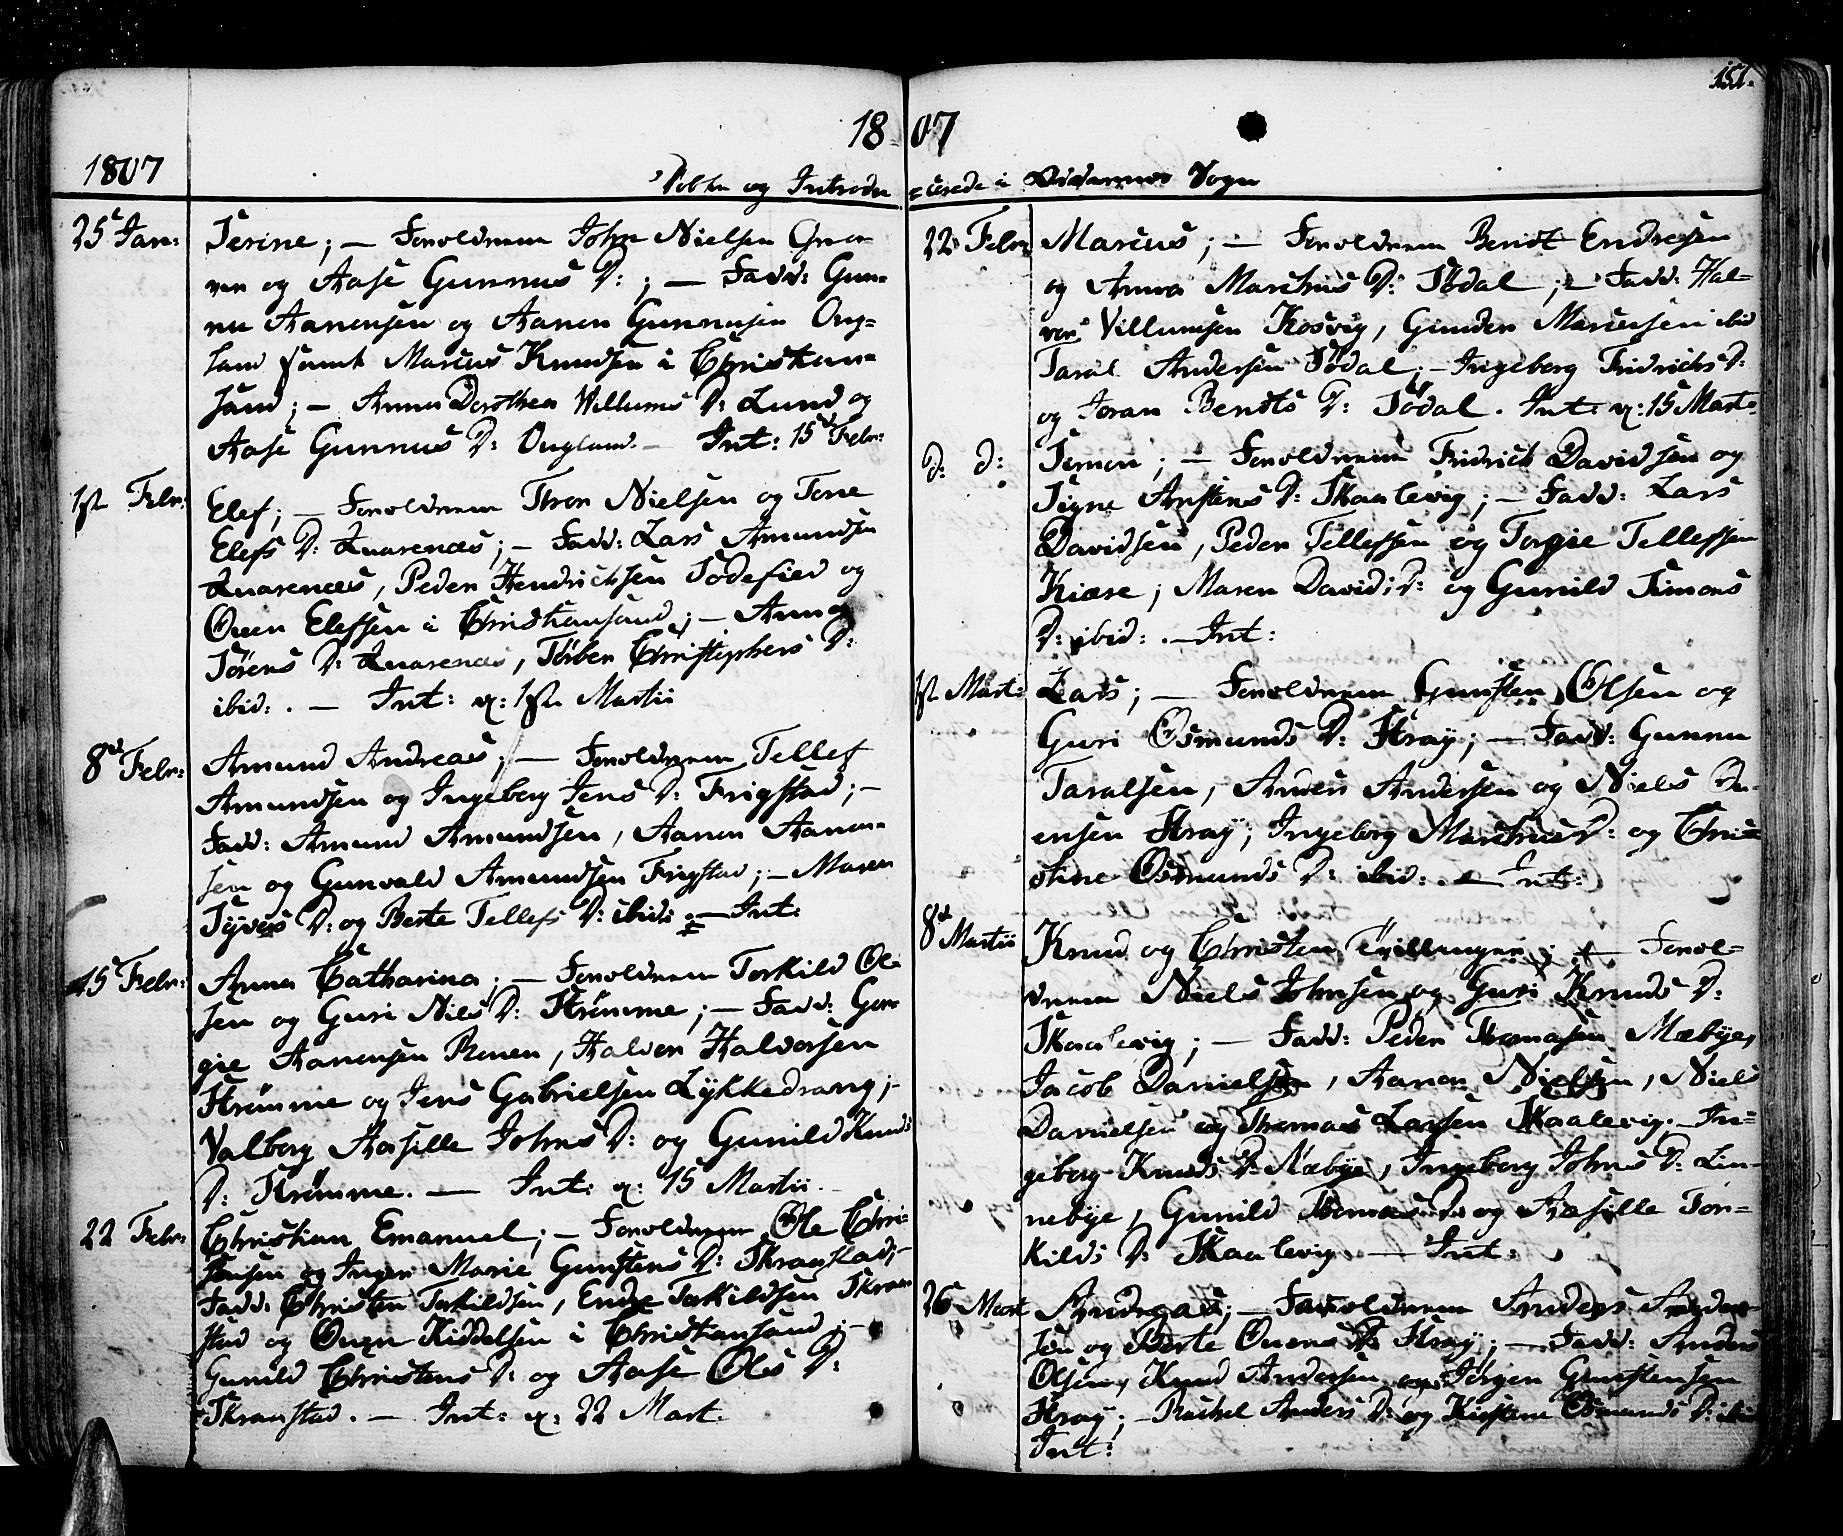 151.
18 07
1807
og Introdu
=cerede i Oddernes Sogn
25 Jan:
Serine; — Forældrene John Nielsen Gron
ner og Aase Gunnus D: ; — Fadd: Gun=
nu Aanensen og Aanen Gunnusen Oug=
land samt Marcus Knudsen i Christian=
sand; — Anna Dorothea Willums D: Lund og
Aase Gunnus D: Ougland. — Int: 15 Febr:
1ste Febr:
Elef; — Forældrene Thron Nielsen og Tone
Elefs D: Quarenæs; — Fadd: Lars Amundsen
Quarenæs, Peder Hendrichsen Sodefied og
Ouen Elefsen i Christiansand; — Anna
Sørens D: Quarenæs, Torber Christophers D:
ibid: . — Int: d: 1ste Martii
8d Febr:
Amund Andreas; — Forældrene Tellef
Amundsen og Ingeborg Jens D: Frigstad; —
Fadd: Amund Amundsen, Aanen Aanen=
sen og Gunvald Amundsen Frigstad; — Maren
Syvers D: og Berte Tellefs D: ibid: — Int:
15 Febr:
Anna Catharina; — Forældrene Torkild Ol=
sen og Guri Niels D: Strømme; — Fadd: Geor
gie Aanensen Renen, Halvor Halvorsen
Strømme og Jens Gabrielsen Lykkedrang; —
Valborg Aasille Johns D: og Gunild Knuds
D: Strømme. — Int: d: 15 Martii.
22 Febr:
Christian Emanuel; — Forældrene Ole Chri=
stensen og Inger Marie Gunstens D: Skranstad; —
Fadd: Christen Torkildsen, Endre Torkildsen Skran
stad og Ouen Kiddelsen i Christiansand; —
Gunild Christens D: og Aase Ols D:
Skranstad. — Int: d: 22 Mart.
22 Febr:
Marcus; — Forældrene Bendt Endresen
og Anna Marchus D: Sødal; — Fadd: Hal=
vor Villumsen Kosvig, Gunder Marcusen ibid
Taral Andersen Sødal; — Ingeborg Fridrichs D:
og Joran Bendts D: Sødal. Int: d: 15 Mart:
D: D:
Simon; — Forældrene Fridrich Davidsen og
Signe Anstens D: Skaalevig; — Fadd: Lars
Davidsen, Peder Tellefsen og Torgie Tellefsen
Kiære; Maren Davids D: og Gunild Simons
D: ibid: . — Int:
1ste Mart:
Lars; — Forældrene Gunsten Olsen og
Guri Osmunds D: Straÿ; — Fadd: Gunnu
Taralsen, Anders Andersen og Niels Ou=
ensen Straÿ; Ingeborg Marchus D: og Chri=
stine Osmunds D: ibid: . — Int:
8de Martii
Knud og Christen Tvillinger; — Foræl=
drene Niels Johnsen og Guri Knuds D:
Skaalevig; — Fadd: Peder Thomasen Mæbÿe,
Jacob Danielsen, Aanen Nielsen, Niels
Danielsen og Thomas Larsen Skaalevig. — In=
geborg Knuds D: Mæbÿe, Ingeborg Johns D: Lin=
nebÿe, Gunild Thomas D: og Aasille Tor=
kilds D: Skaalevig. — Int:
26 Mart
Andreas; — Forældrene Anders Ander
sen og Berte Ouens D: Straÿ; — Fadd: Anders
Olsen, Knud Andersen og Jørgen Gunstensen
Straÿ; — Rachel Anders D: og Kirstine Osmunds D: ibid
Int: